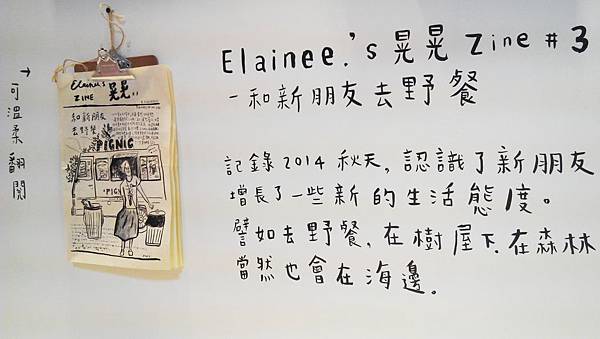 →可溫柔翻閱
Elainee's
ZINE 晃晃
和新朋友
去野餐
PIGNIC
PIGNIC
Elainee.'s 晃晃 Zine # 3
一和新朋友去野餐
記錄2014秋天,認識了新朋友
增長了一些新的生活態度。
譬如去野餐,在樹屋下.在森林
當然也會在海邊。